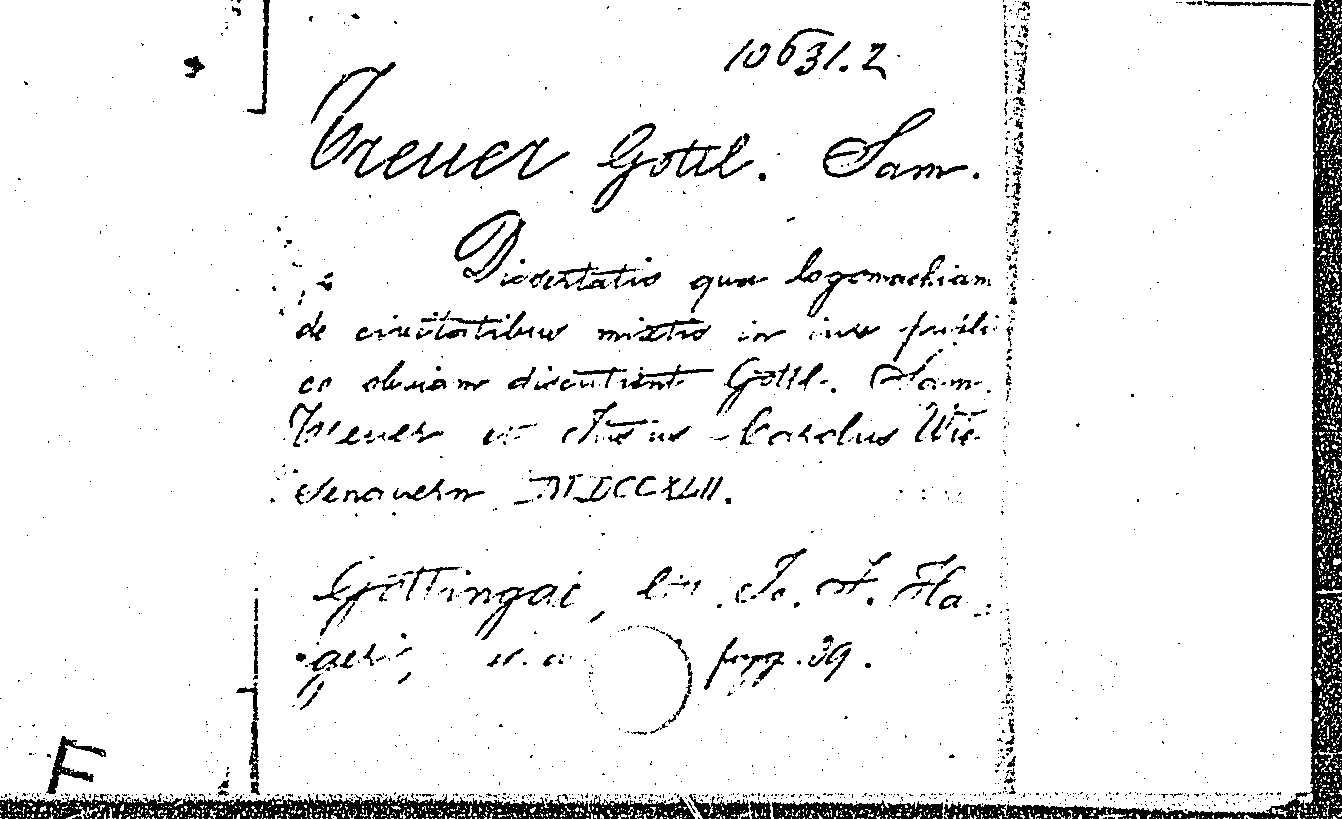 10631.2
Treuer Gottl. Sam.
Dissertatio qua logomachiam
de civitatibus mixtis in iure publi
co obviam discutiunt Gottl. Sam.
Treuer et Carolus Wie
denavern MDCCXLII.
Gottingae, litt. Jo. F. Ha
geri, pagg. 39.
F